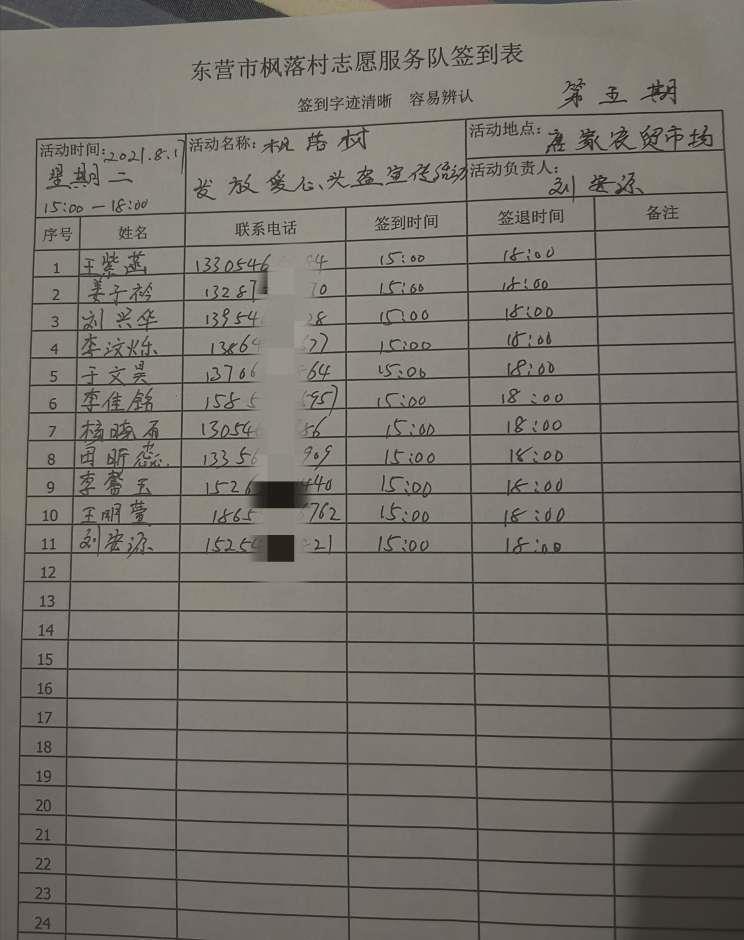 东营市枫落村志愿服务队签到表
签到字迹清晰 容易辨认 第五期
活动时间:2021.8.17 活动名称:枫落村 活动地点:唐家农贸市场
星期二 发放爱心头盔宣传活动 活动负责人:
15:00—18:00 刘宏源
序号 姓名 联系电话 签到时间 签退时间 备注
1 王紫菡 1330546 84 15:00 18:00
2 姜子衿 13287 70 15:00 18:00
3 刘兴华 13954 28 15:00 18:00
4 李汶烁 13864 577 15:00 18:00
5 于文昊 13706 64 15:00 18:00
6 李佳铭 1585 5957 15:00 18:00
7 杨晓 130546 86 15:00 18:00
8 田昕蕊 13356 909 15:00 18:00
9 李馨玉 1526 440 15:00 18:00
10 王明萱 1865 762 15:00 18:00
11 刘宏源 15254 21 15:00 18:00
12
13
14
15
16
17
18
19
20
21
22
23
24